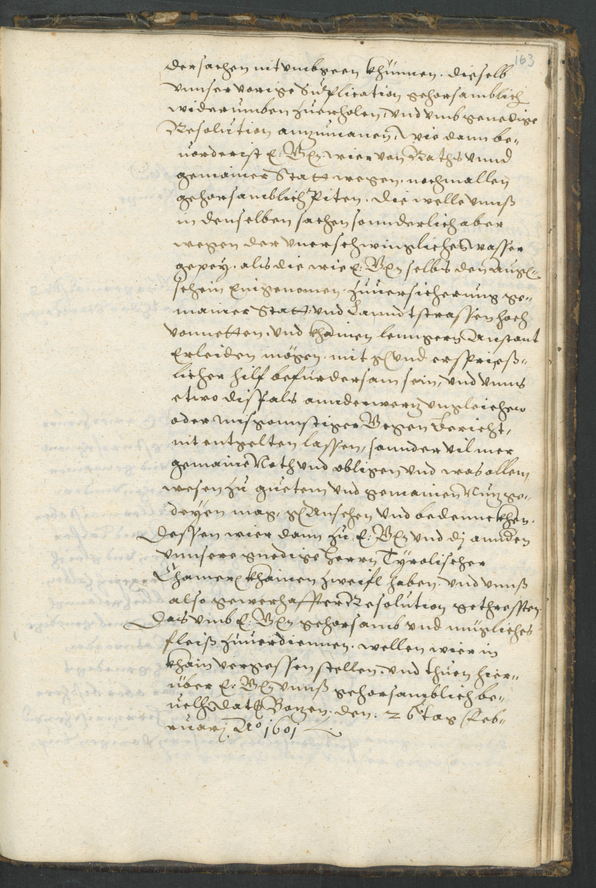 163
der sachen nit umbgeen khünnen. dieselb
unnser vorige Supplication gehorsamblich
widerumben zuerholen, und umb genedige
Resolution anzumanen, wie dann be„
uorderist E: Gn: wier von Raths unnd
gemainer Statt wegen, nochmallen
gehorsamblich piten, die welle unnß
in denselben sachen sonnderlich aber
wegen der unerschwinglichen wasser
gepey, als die wie E: Gn: selbs den augen„
schein eingenomen, zuuersicherung ge„
mainer Statt und Lanndtstrassen hoch
vonnetten, und khainen lenngern anstant
erleiden mögen, mit g: und ersprieß„
licher hilf befürdersam sein, und unns
etwo dißfals annderwerz ungleichen
oder misgonnstiger wegen bericht,
nit entgelten lassen, sonnder vil mer
gemaine Noth und obligen und was allem
wesen zu guetem und gemainem Nuz ge„
deyen mag, g: ansehen und bedennckhen.
Dessen wier dann zu E: Gn: und den annden
unnsere gnedige herrn Tyrolischer
Chamer, khainen zweifl haben, und unnß
also gewerhaffter Resolution gethresten
Das umb E: Gn: gehorsamb und mügliches
fleiß zuuerdiennen, wellen wier in
khain vergessen stellen, und thuen hier„
über E: Gn: unnß gehorsamblich be„
uelhen Dat: Bozen, den 26 tag Feb„
ruarj Ao 1601